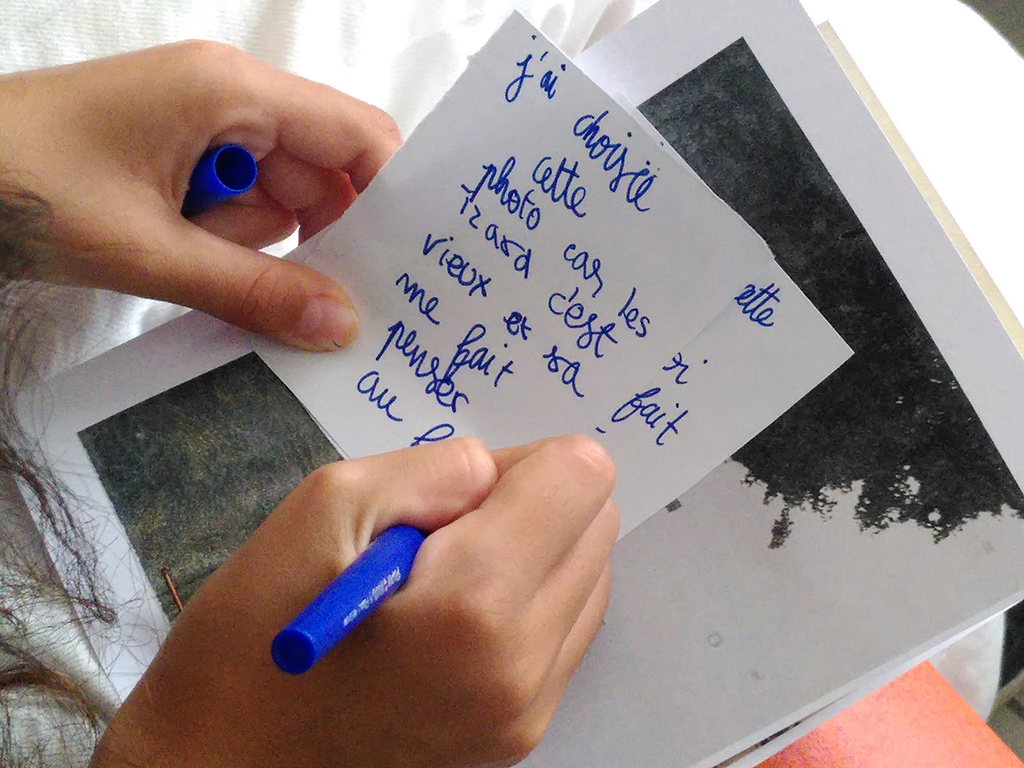 j'ai choisie
cette
photo car les
c'est
vieux et sa fait
me fait
penser
au
ette